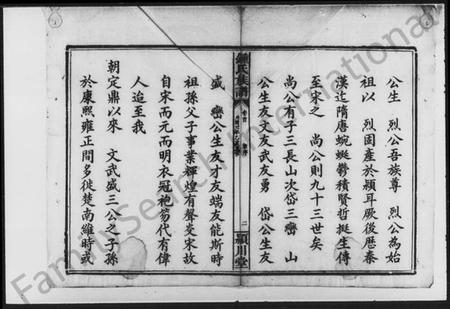 公生　烈公吾族尊　烈公為始
祖以　烈固產於潁耳厥後歷秦
漢迄隋唐蜿蜒鬱積賢哲挺生傳
至宋之　尚公則九十三世矣
尚公有子三長山次岱三巒　山
公生友文友武友勇　岱公生友
盛　巒公生友才友端友能斯時
祖孫父子事業輝煌有聲炎宋故
自宋而元而明衣冠袍笏代有偉
人迨至我
朝定鼎以來　文武盛三公之子孫
於康熙雍正間多徙楚南維時或
鍾氏族譜
卷首
二
潁川堂
FamilySearch International